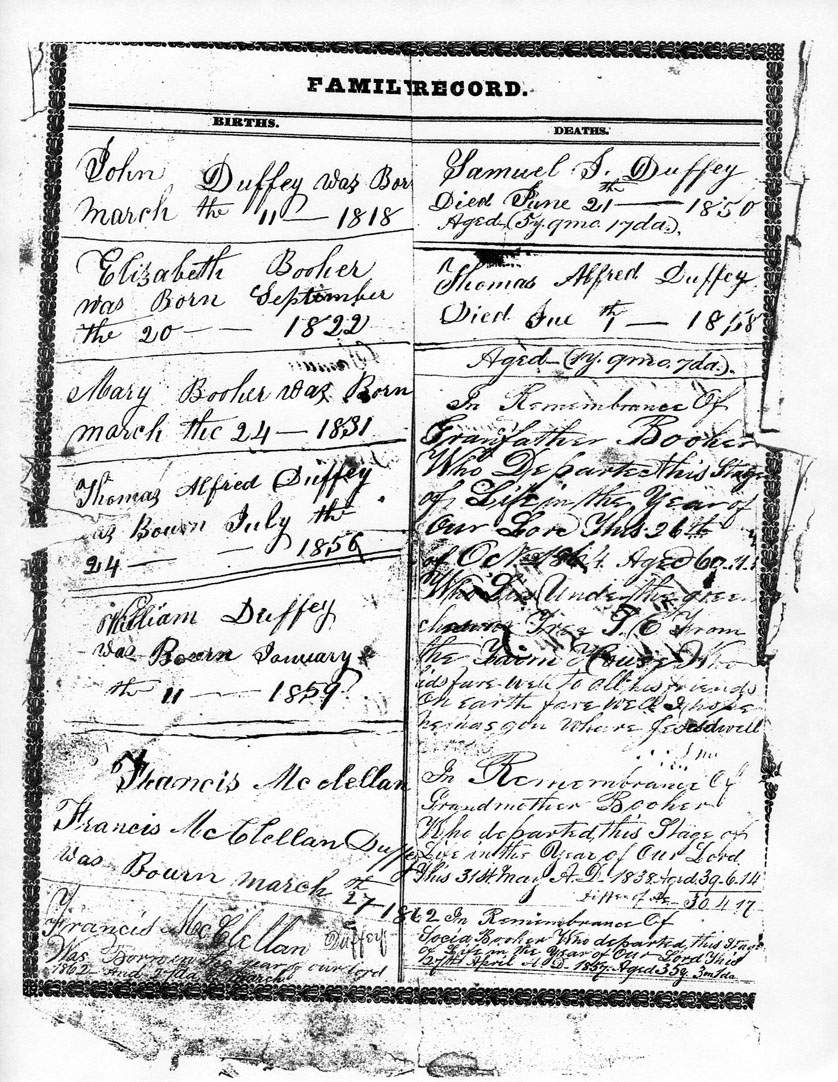 FAMILY RECORD.
BIRTHS.
John Duffey was Bor
march the 11 — 1818
Elizabeth Booher
was Born September
the 20 — — 1822
Mary Booher was Born
march the 24 — 1831
Thomas Alfred Duffey
as Bourn July the
24 — — 1856
William Duffey
was Bourn January
th 11 — 1859
Francis Mcclellan
Francis McClellan Duffey
was Bourn march th
27 1862
Francis McClellan Duffey
Was Born in year of our lord
1862 And 27 da March
DEATHS.
Samuel J. Duffey
Died June 21 th — 1850
Aged (5y. 9mo. 17da).
Thomas Alfred Duffey
Died th 1 — 1858
Aged (1y. 9mo. 7da).
In Remembrance Of
Granfather Booher
Who Departed this Stage
of Life in the Year of
Our Lord This 26th
of Oct. 1864. Aged 60.
Who Lies Under the green
Tree from
the House Who
ids fare well to all his friends
On earth fare well I hope
he has gon Whare dwell
In Remembrance Of
Grandmother Booher
Who departed this Stage of
Life in the Year of Our Lord
This 31st May A.D. 1838. 39.6.14
30 4 17
In Remembrance Of
Booher Who departed this Stage
of Life in the Year of Our Lord This
27th April A.D. 1857. Aged 33y. 3m 1da